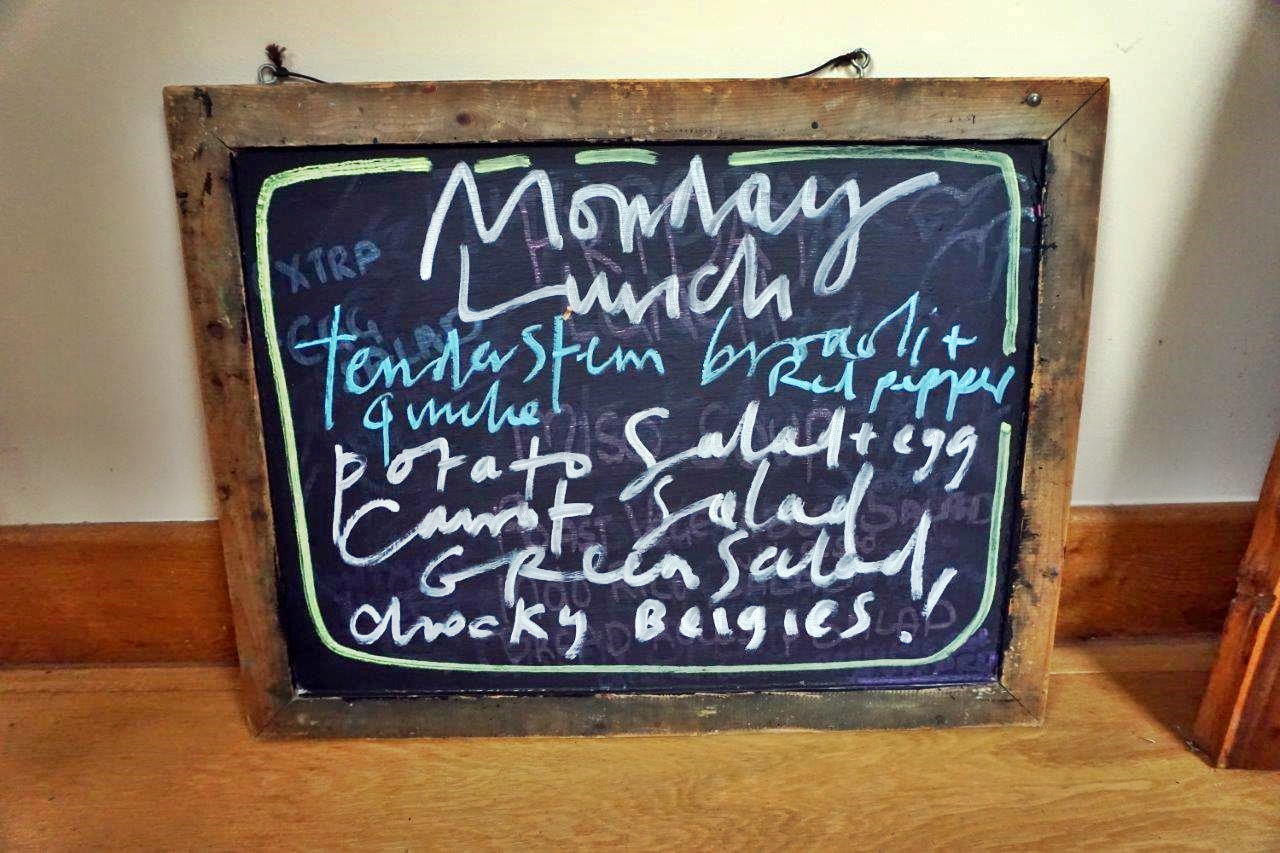 Monday
Lunch
tenderstem broccoli +
Red pepper
quiche
potato Salad + egg
Carrot Salad
GReen Salad
chocky BeigiEs!
XTRP
EGG